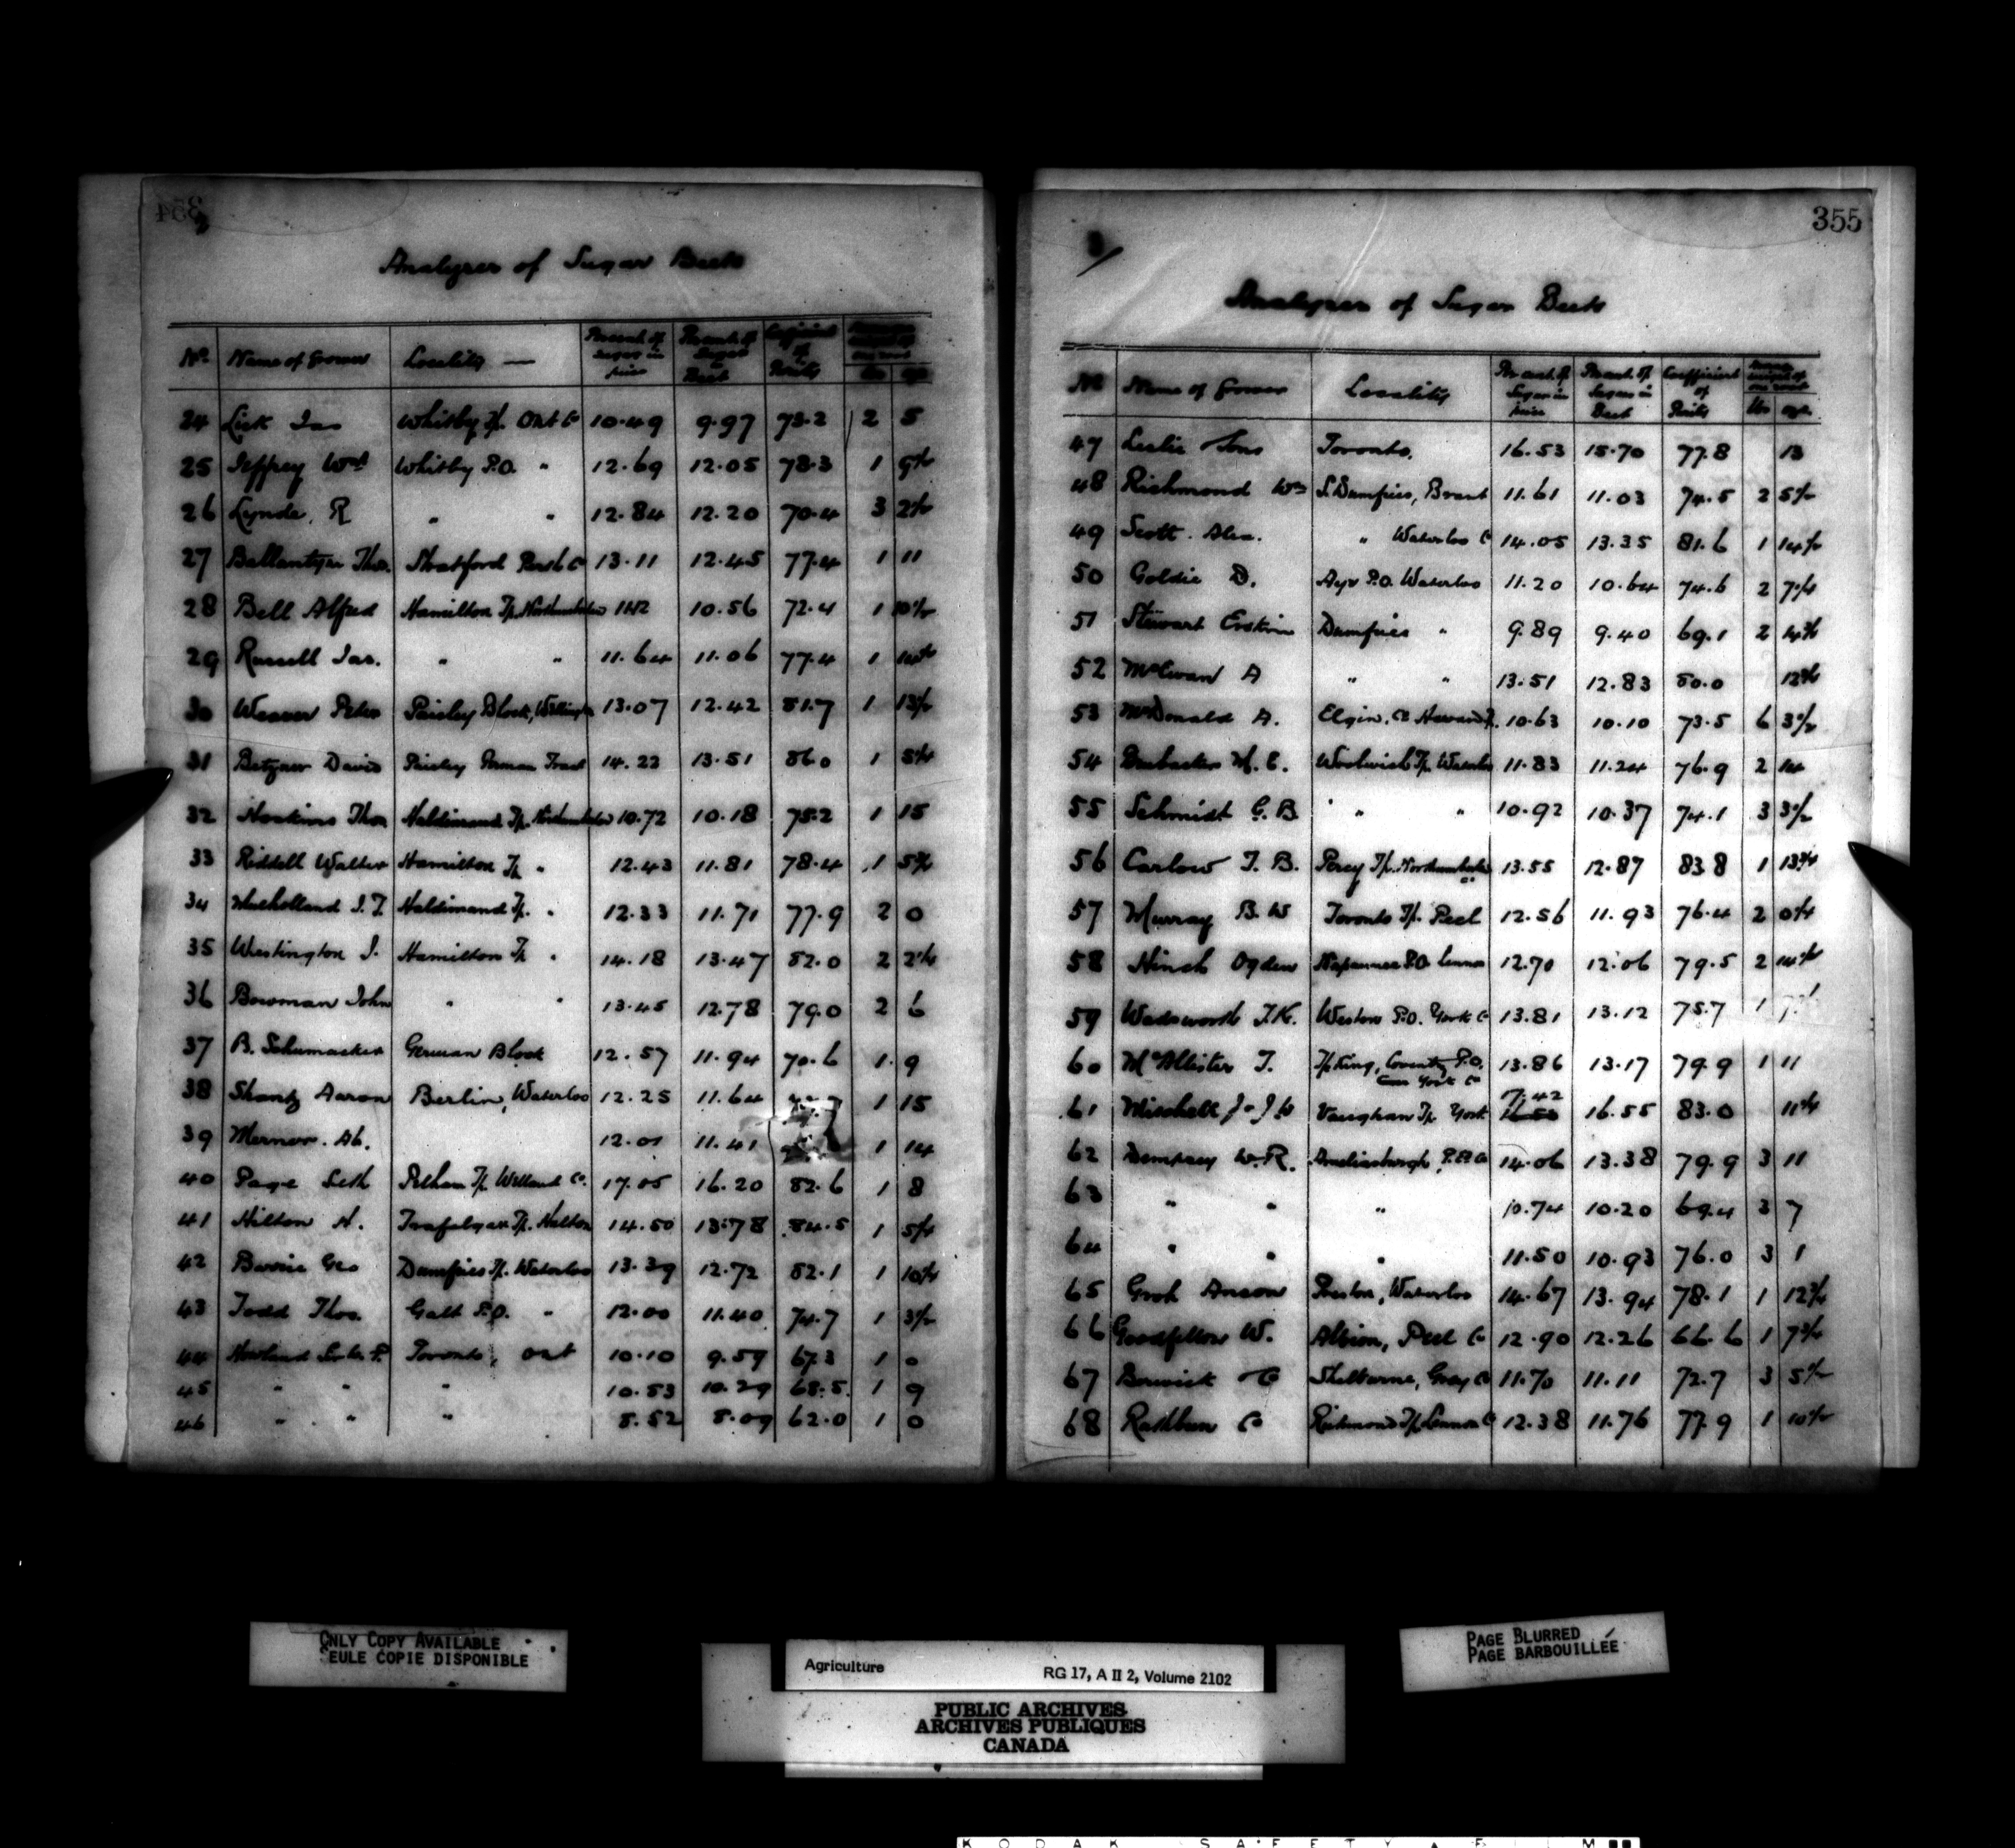 354
Analyses of Sugar Beets
No Name of Grower Locality — Per cent. of Sugar in juice Per cent. of Sugar in Beet Coefficient of Purity lbs ozs
24 Lick Jas Whitby Tp. Ont Co 10.49 9.97 73.2 2 5
25 Jeffrey Wm Whitby P.O. " 12.69 12.05 78.3 1
26 Lynde, R " " 12.84 12.20 70.4 3
27 Ballantyne Thos. Stratford Perth Co 13.11 12.45 77.4 1 11
28 Bell Alfred Hamilton Tp. Northumberland 10.56 72.4 1
29 Russell Jas. " " 11.64 11.06 77.4 1
30 Weaver Peter Paisley Block, 13.07 12.42 81.7 1 13½
31 David Paisley German Tract 14.23 13.51 86.0 1
32 Hoskins Thos Haldimand Tp. Northumberland 10.72 10.18 75.2 1 15
33 Riddell Walter Hamilton Tp " 12.43 11.81 78.4 1
34 Mulholland J. T Haldimand Tp. " 12.33 11.71 77.9 2 0
35 Westington J. Hamilton Tp " 14.18 13.47 82.0 2
36 Bowman John " " 13.45 12.78 79.0 2 6
37 B. Schumacher German Block 12.57 11.94 70.6 1 9
38 Shantz Aaron Berlin, Waterloo 12.25 11.64 1 15
39 Merner. Ab. 12.01 11.41 1 14
40 Page Seth Pelham Tp. Welland Co. 17.05 16.20 82.6 1 8
41 Hilton H. Trafalgar Tp. Halton 14.50 13.78 84.5 1
42 Barrie Geo Dumfries Tp. Waterloo 13.39 12.72 82.1 1
43 Todd Thos. Galt P.O. " 12.00 11.40 74.7 1 3½
44 Howland P. Toronto, Ont 10.10 9.59 67.3 1 0
45 " " " 10.83 10.29 68.5 1 9
46 " " " 8.52 8.09 62.0 1 0
355
3/
Analyses of Sugar Beets
No Name of Grower Locality Per cent. of Sugar in juice Per cent. of Sugar in Beet Coefficient of Purity lbs ozs
47 Leslie Sons Toronto. 16.53 15.70 77.8 13
48 Richmond Wm S. Dumfries, Brant 11.61 11.03 74.5 2 5½
49 Scott. Alex. " Waterloo Co 14.05 13.35 81.6 1
50 Goldie D. Ayr P.O. Waterloo 11.20 10.64 74.6 2
51 Stewart Erskin Dumfries " 9.89 9.40 69.1 2
52 McEwan A " " 13.51 12.83 80.0
53 McDonald A. Elgin, Co 10.63 10.10 73.5 6 3½
54 M. E. Woolwich Tp. Waterloo 11.83 11.24 76.9 2 14
55 Schmidt G. B. " " 10.92 10.37 74.1 3 3½
56 Carlow T. B. Percy Tp. Northumberland 13.55 12.87 83.8 1
57 Murray B. W Toronto Tp. Peel 12.56 11.93 76.4 2
58 Hinch Ogden Napanee P.O. Lennox 12.70 12.06 79.5 2
59 Wadsworth T.K. Weston P.O. York Co 13.81 13.12 75.7 1
60 McAllister J. Tp King, Coventry P.O. York Co 13.86 13.17 79.9 1 11
61 Mitchell J & J W Vaughan Tp. York 17.42 16.55 83.0
62 Dempsey W.R. Ameliasburgh, P.E Co 14.06 13.38 79.9 3 11
63 " " " 10.74 10.20 69.4 3 7
64 " " " 11.50 10.93 76.0 3 1
65 Groh Anson Preston, Waterloo 14.67 13.94 78.1 1 12¾
66 Goodfellow W. Albion, Peel Co 12.90 12.26 66.6 1
67 Berwick & Co Shelburne, Grey Co 11.70 11.11 72.7 3 5½
68 Rathbun Co Richmond Tp Lennox Co 12.38 11.76 77.9 1 10½
ONLY COPY AVAILABLE
SEULE COPIE DISPONIBLE
PAGE BLURRED
PAGE BARBOUILLÉE
Agriculture RG 17, A II 2, Volume 2102
PUBLIC ARCHIVES
ARCHIVES PUBLIQUES
CANADA
KODAK SAFETY FILM